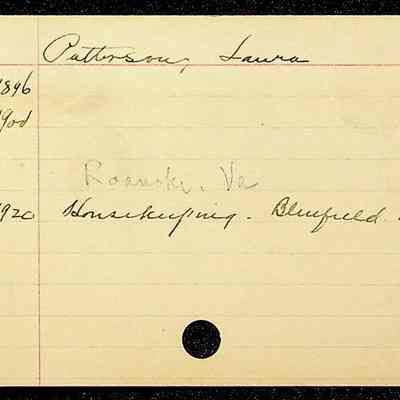 Patterson, Laura
1896
Roanoke, Va
1920 Housekeeping. Bluefield.